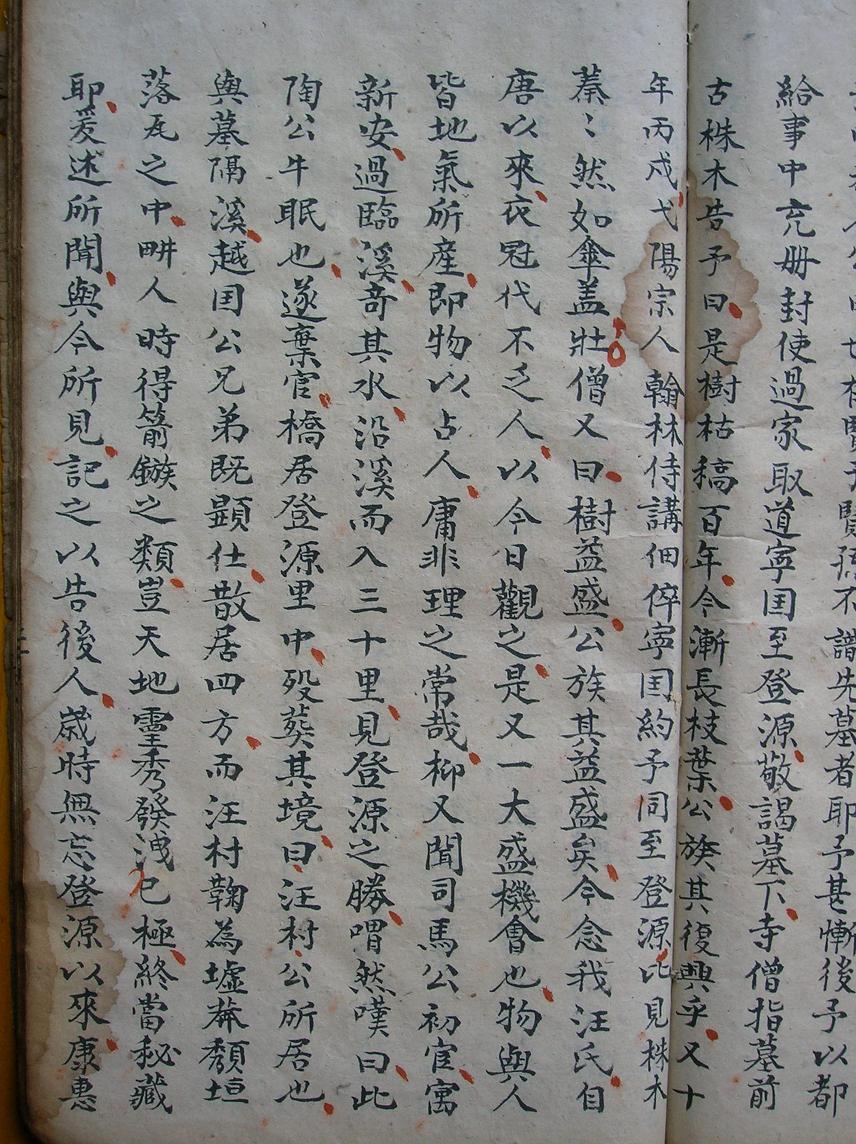 不譜先墓者耶予甚慚後予以都
給事中充册封使過家取道寧囯至登源敬謁墓下寺僧指墓前
古株木告予曰是樹枯稿百年今漸長枝葉公族其復興乎又十
年丙戍弋陽宗人翰林侍講佃倅寧囯約予同至登源比見株木
蓁〻然如傘盖壯僧又曰樹益盛公族其益盛矣今念我汪氏自
唐以來衣冠代不乏人以今日觀之是又一大盛機會也物與人
皆地氣所産即物以占人庸非理之常哉抑又聞司馬公初宦寓
新安過臨溪奇其水沿溪而入三十里見登源之勝喟然嘆曰此
陶公牛眠也遂棄官橋居登源里中殁葬其境曰汪村公所居也
與墓隔溪越囯公兄弟既顕仕散居四方而汪村鞠為墟莽頽垣
落瓦之中畊人時得箭鏃之類豈天地靈秀發洩已極終當秘藏
耶爰述所聞與今所見記之以告後人歳時無忘登源以來康惠